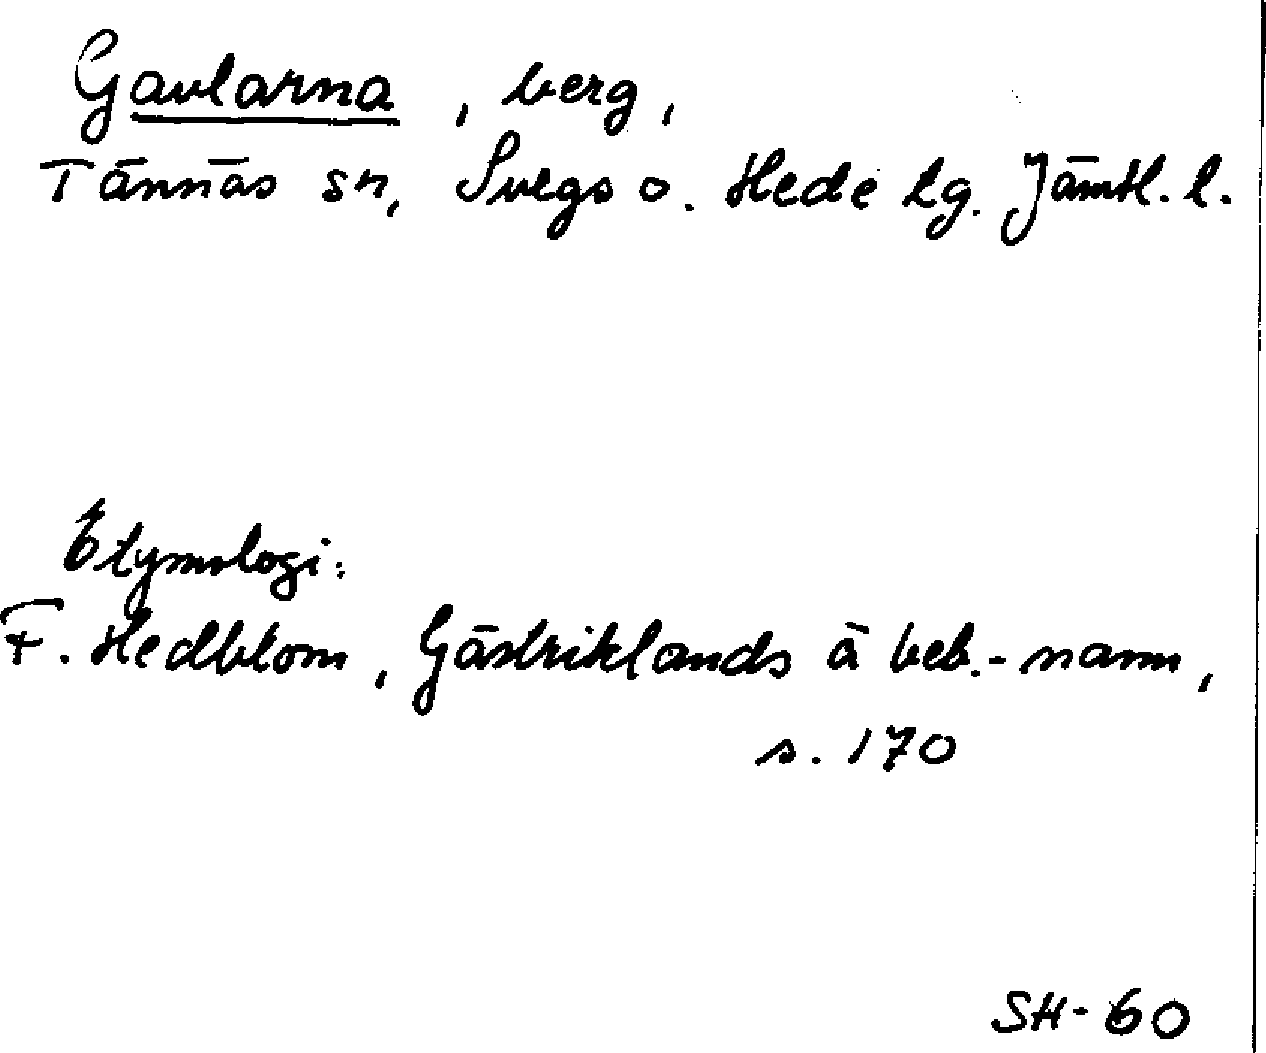 Gavlarna, berg,
Tännäs sn, Svegs o. Hede tg. Jämtl. l.
Etymologi:
F. Hedblom, Gästriklands ä beb.-namn,
s. 170
SH-60